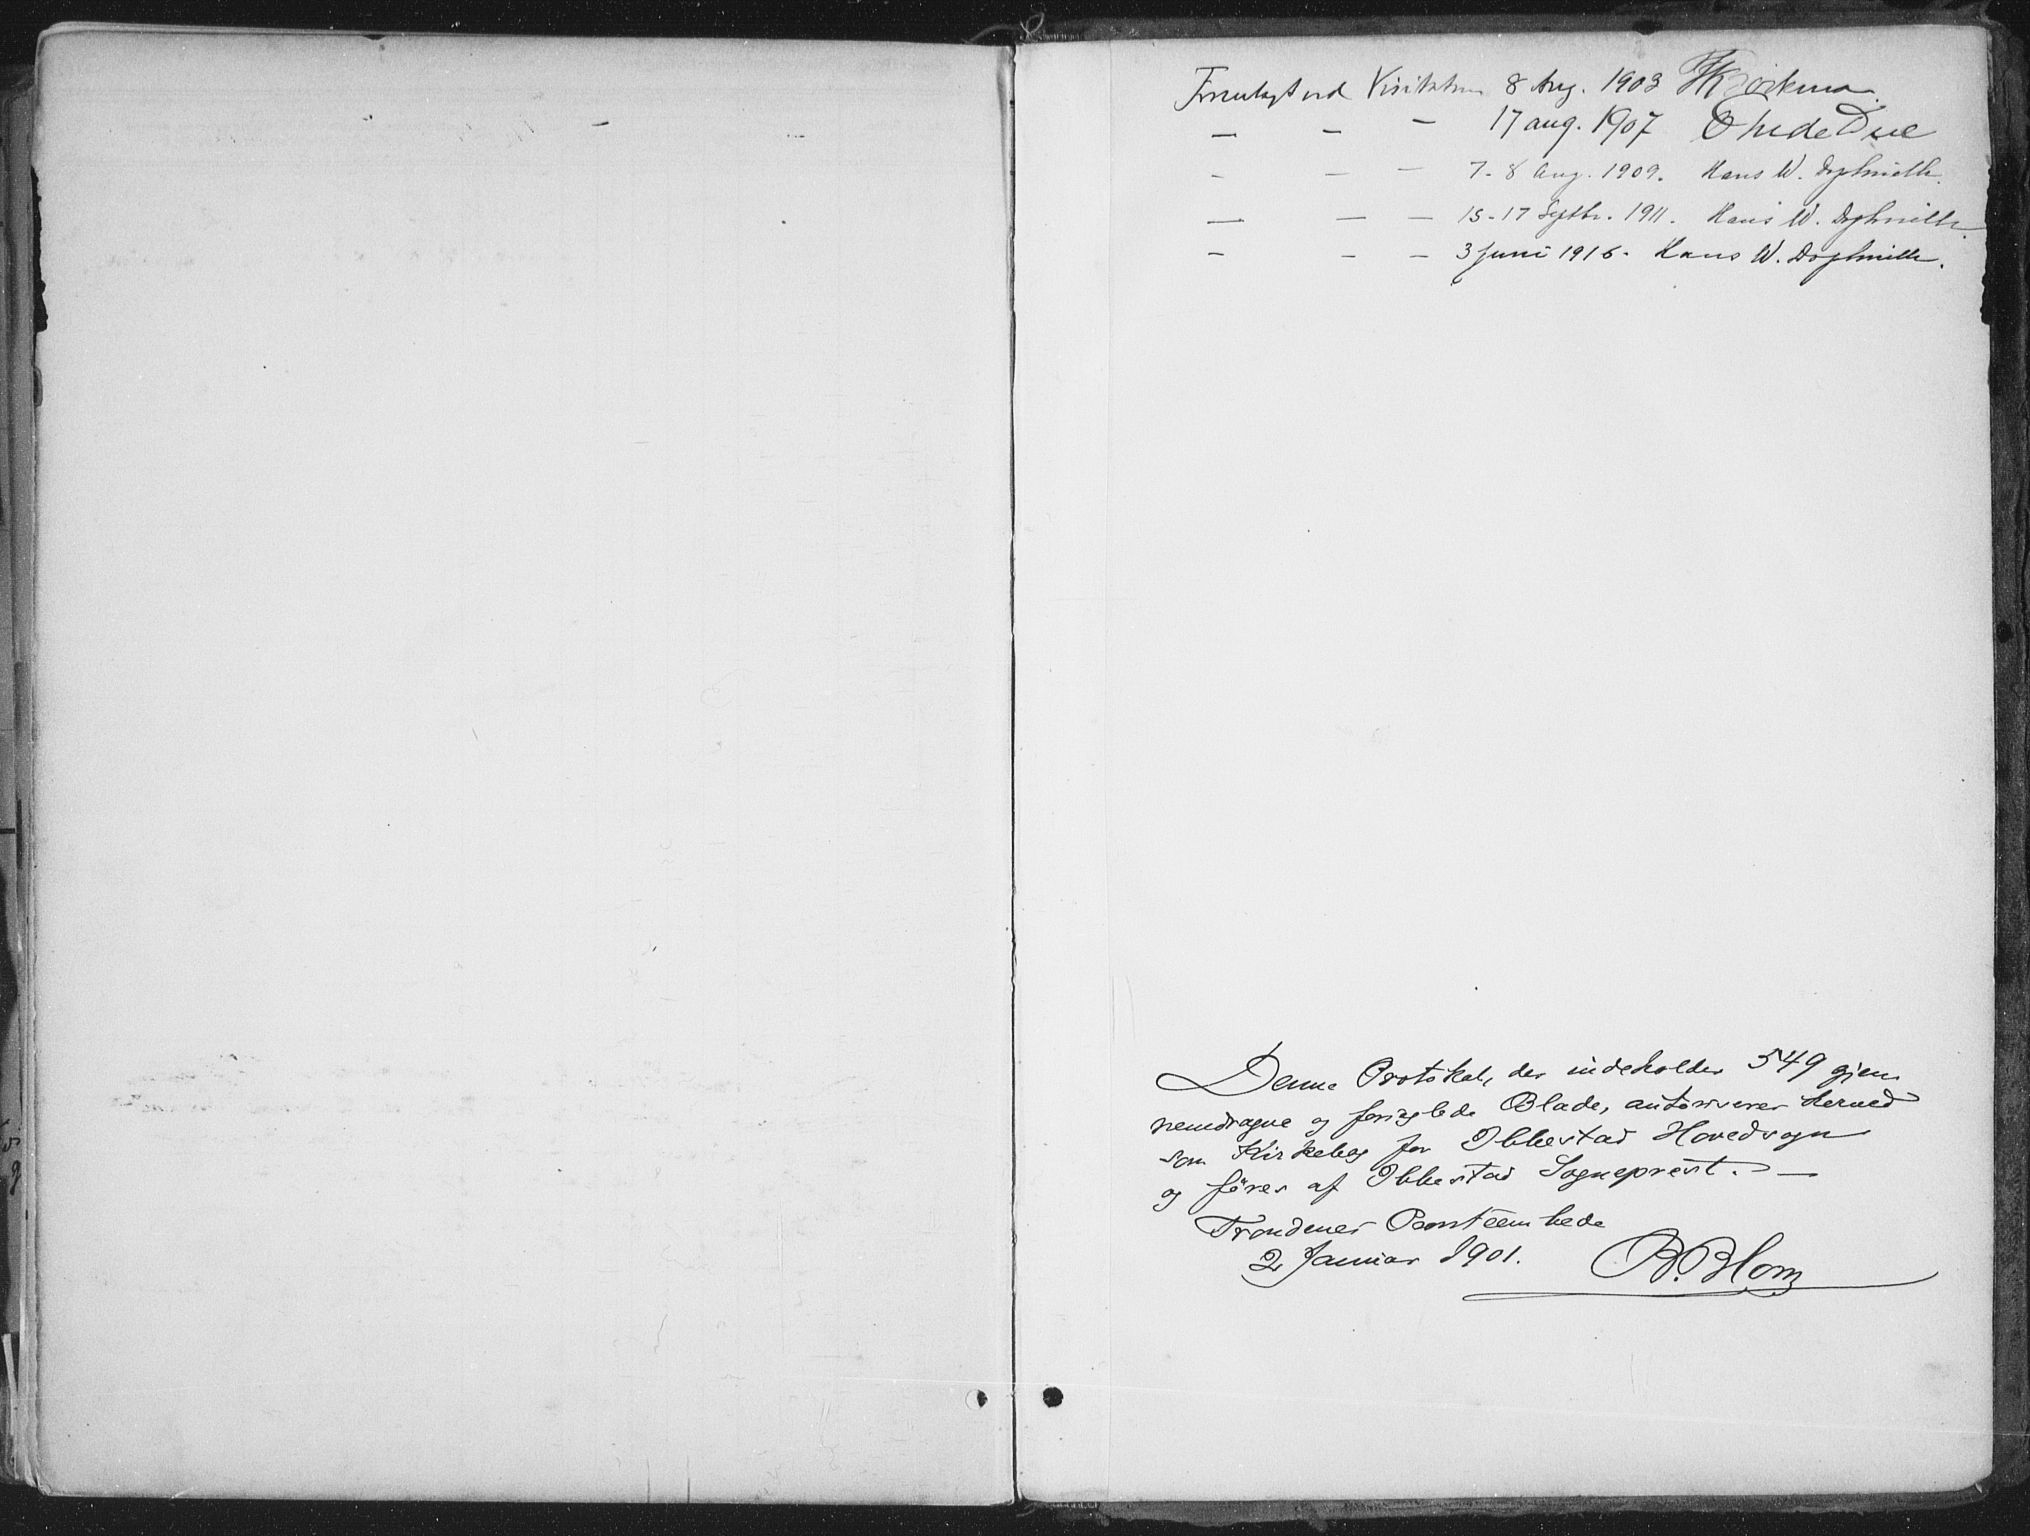 Fremlagt ved Visitatsen 8 Aug. 1903
— — — 17 aug. 1907 Thede Due
— — — 7-8 Aug. 1909. Hans W.
— — — 15-17 Septbr. 1911. Hans W.
— — — 3 juni 1916. Hans W.
Denne Protokol, der indeholder 549 gjen
nemdragne og forseglede Blade, autoriseres herved
som Kirkebog for Ibbestad Hovedsogn
og føres af Ibbestad Sogneprest. —
Trondenes Provsteembede
2 Januar 1901. B. Blom